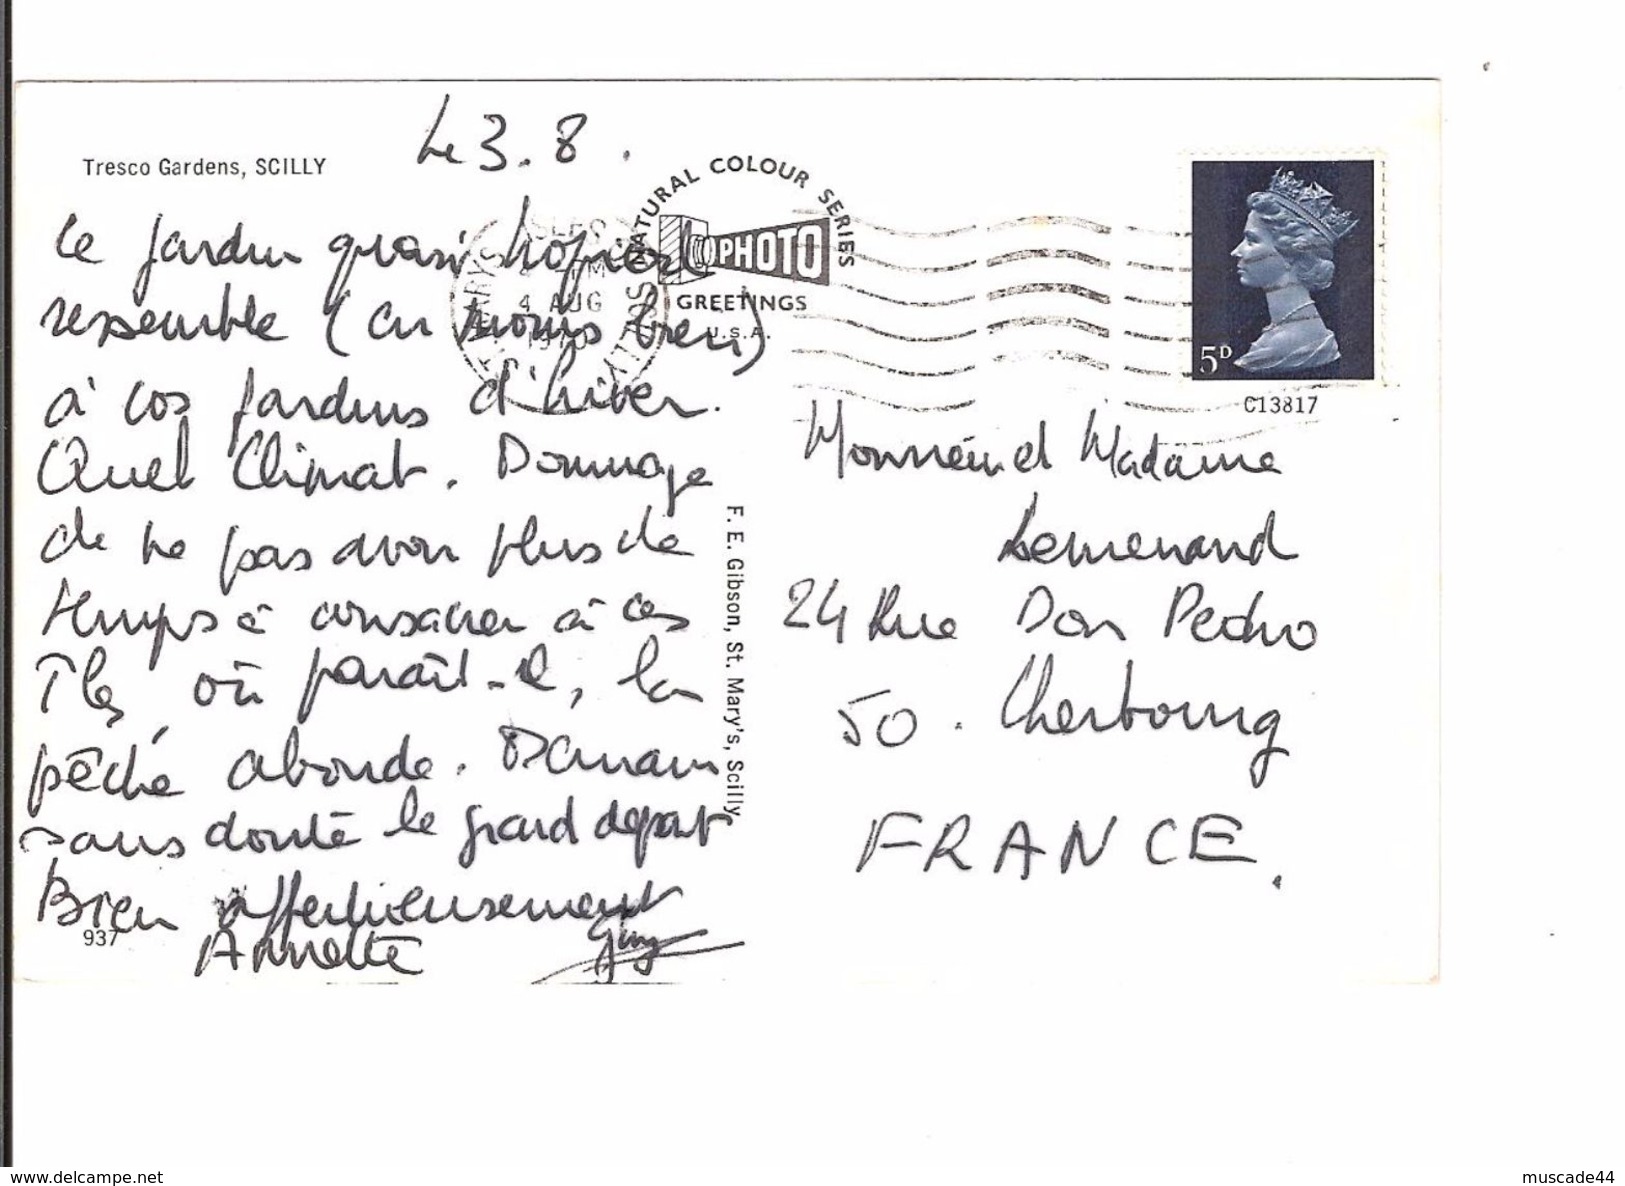 Tresco Gardens, SCILLY
Le 3.8.
Ce jardin quasi tropical
ressemble (en moins bien)
à vos jardins d'hiver.
Quel Climat. Dommage
de ne pas avoir plus de
temps à consacrer à ces
Iles, où paraît-il, la
pêche abonde. Demain
sans doute le grand départ
Bien affectueusement
Annette Guy
937
NATURAL COLOUR SERIES
PHOTO
GREETINGS
U.S.A.
4 AUG
1970
F. E. Gibson, St. Mary's, Scilly.
5D
C13817
Monsieur et Madame
Lemenand
24 Rue Don Pedro
50. Cherbourg
FRANCE.
www.delcampe.net
muscade44